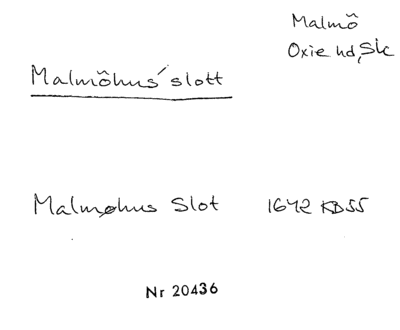 Malmö
Oxie hd, Sk
Malmöhus slott
Malmøhus Slot 1642 KB55
Nr 20436